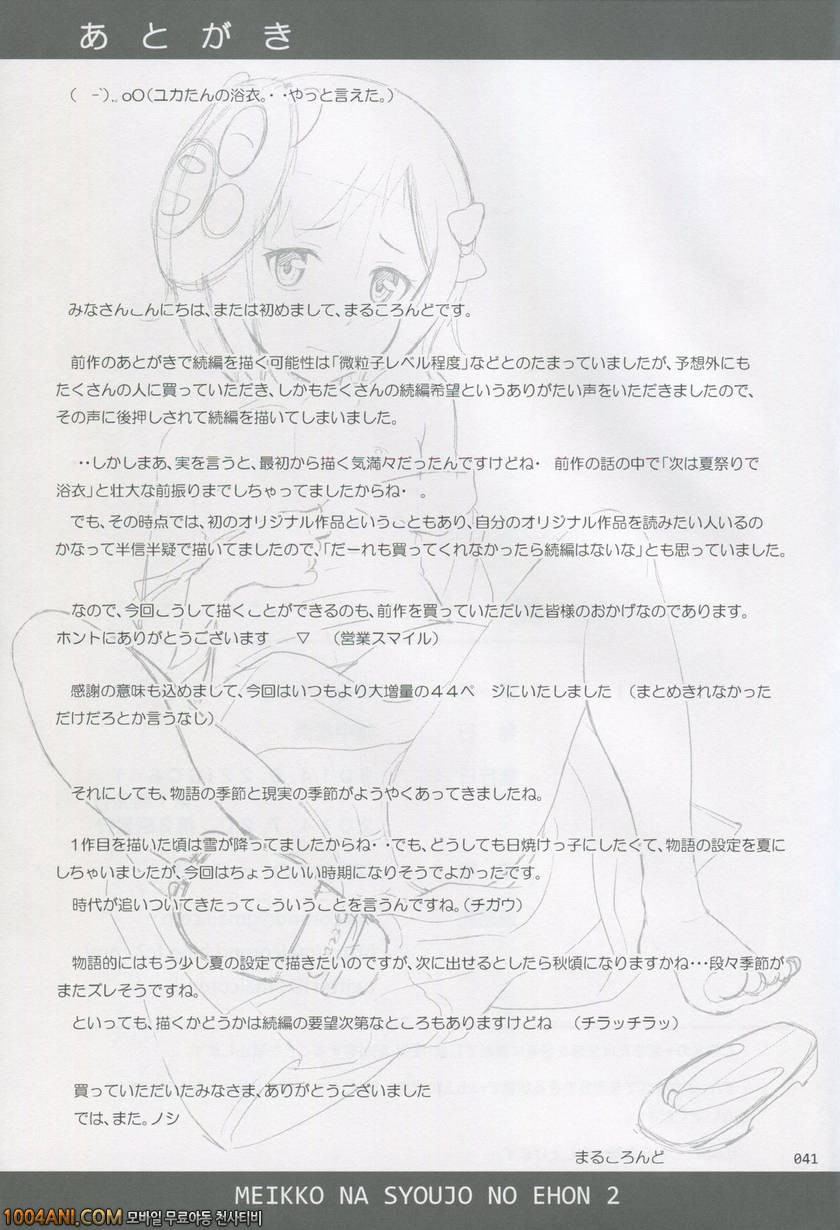 あとがき
( -`)..oO(ユカたんの浴衣。・・やっと言えた。)
みなさんこんにちは、または初めまして、まるころんどです。
前作のあとがきで続編を描く可能性は「微粒子レベル程度」などとのたまっていましたが、予想外にも
たくさんの人に買っていただき、しかもたくさんの続編希望というありがたい声をいただきましたので、
その声に後押しされて続編を描いてしまいました。
・・しかしまあ、実を言うと、最初から描く気満々だったんですけどね・ 前作の話の中で「次は夏祭りで
浴衣」と壮大な前振りまでしちゃってましたからね・ 。
でも、その時点では、初のオリジナル作品ということもあり、自分のオリジナル作品を読みたい人いるの
かなって半信半疑で描いてましたので、「だーれも買ってくれなかったら続編はないな」とも思っていました。
なので、今回こうして描くことができるのも、前作を買っていただいた皆様のおかげなのであります。
ホントにありがとうございます ▽ (営業スマイル)
感謝の意味も込めまして、今回はいつもより大増量の44ペ ジにいたしました (まとめきれなかった
だけだろとか言うなし)
それにしても、物語の季節と現実の季節がようやくあってきましたね。
1作目を描いた頃は雪が降ってましたからね・・でも、どうしても日焼けっ子にしたくて、物語の設定を夏に
しちゃいましたが、今回はちょうどいい時期になりそうでよかったです。
時代が追いついてきたってこういうことを言うんですね。(チガウ)
物語的にはもう少し夏の設定で描きたいのですが、次に出せるとしたら秋頃になりますかね・・・段々季節が
またズレそうですね。
といっても、描くかどうかは続編の要望次第なところもありますけどね (チラッチラッ)
買っていただいたみなさま、ありがとうございました
では、また。ノシ
まるころんど
041
MEIKKO NA SYOUJO NO EHON 2
1004ANI.COM 모바일 무료야동 천사티비